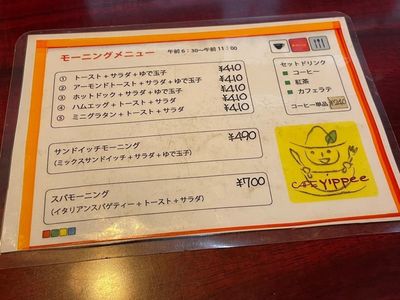 モーニングメニュー 午前6:30〜午前11:00
① トースト+サラダ+ゆで玉子 ¥410
② アーモンドトースト+サラダ+ゆで玉子 ¥410
③ ホットドック+サラダ+ゆで玉子 ¥410
④ ハムエッグ+トースト+サラダ ¥410
⑤ ミニグラタン+トースト+サラダ ¥410
サンドイッチモーニング ¥490
(ミックスサンドイッチ+サラダ+ゆで玉子)
スパモーニング ¥700
(イタリアンスパゲティー+トースト+サラダ)
セットドリンク
コーヒー
紅茶
カフェラテ
コーヒー単品
CAFE Yippee